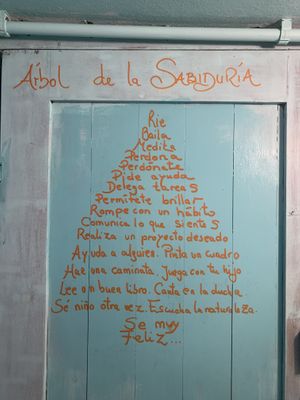 Árbol de la SABIDURÍA
Rie
Baila
Medita
Perdona
Perdónate
Pide ayuda
Delega tareas
Permítete brillar
Rompe con un hábito
Comunica lo que sientes
Realiza un proyecto deseado
Ayuda a alguien. Pinta un cuadro
Haz una caminata. Juega con tu hijo
Lee un buen libro. Canta en la ducha
Sé niño otra vez. Escucha la naturaleza.
Se muy
Feliz...